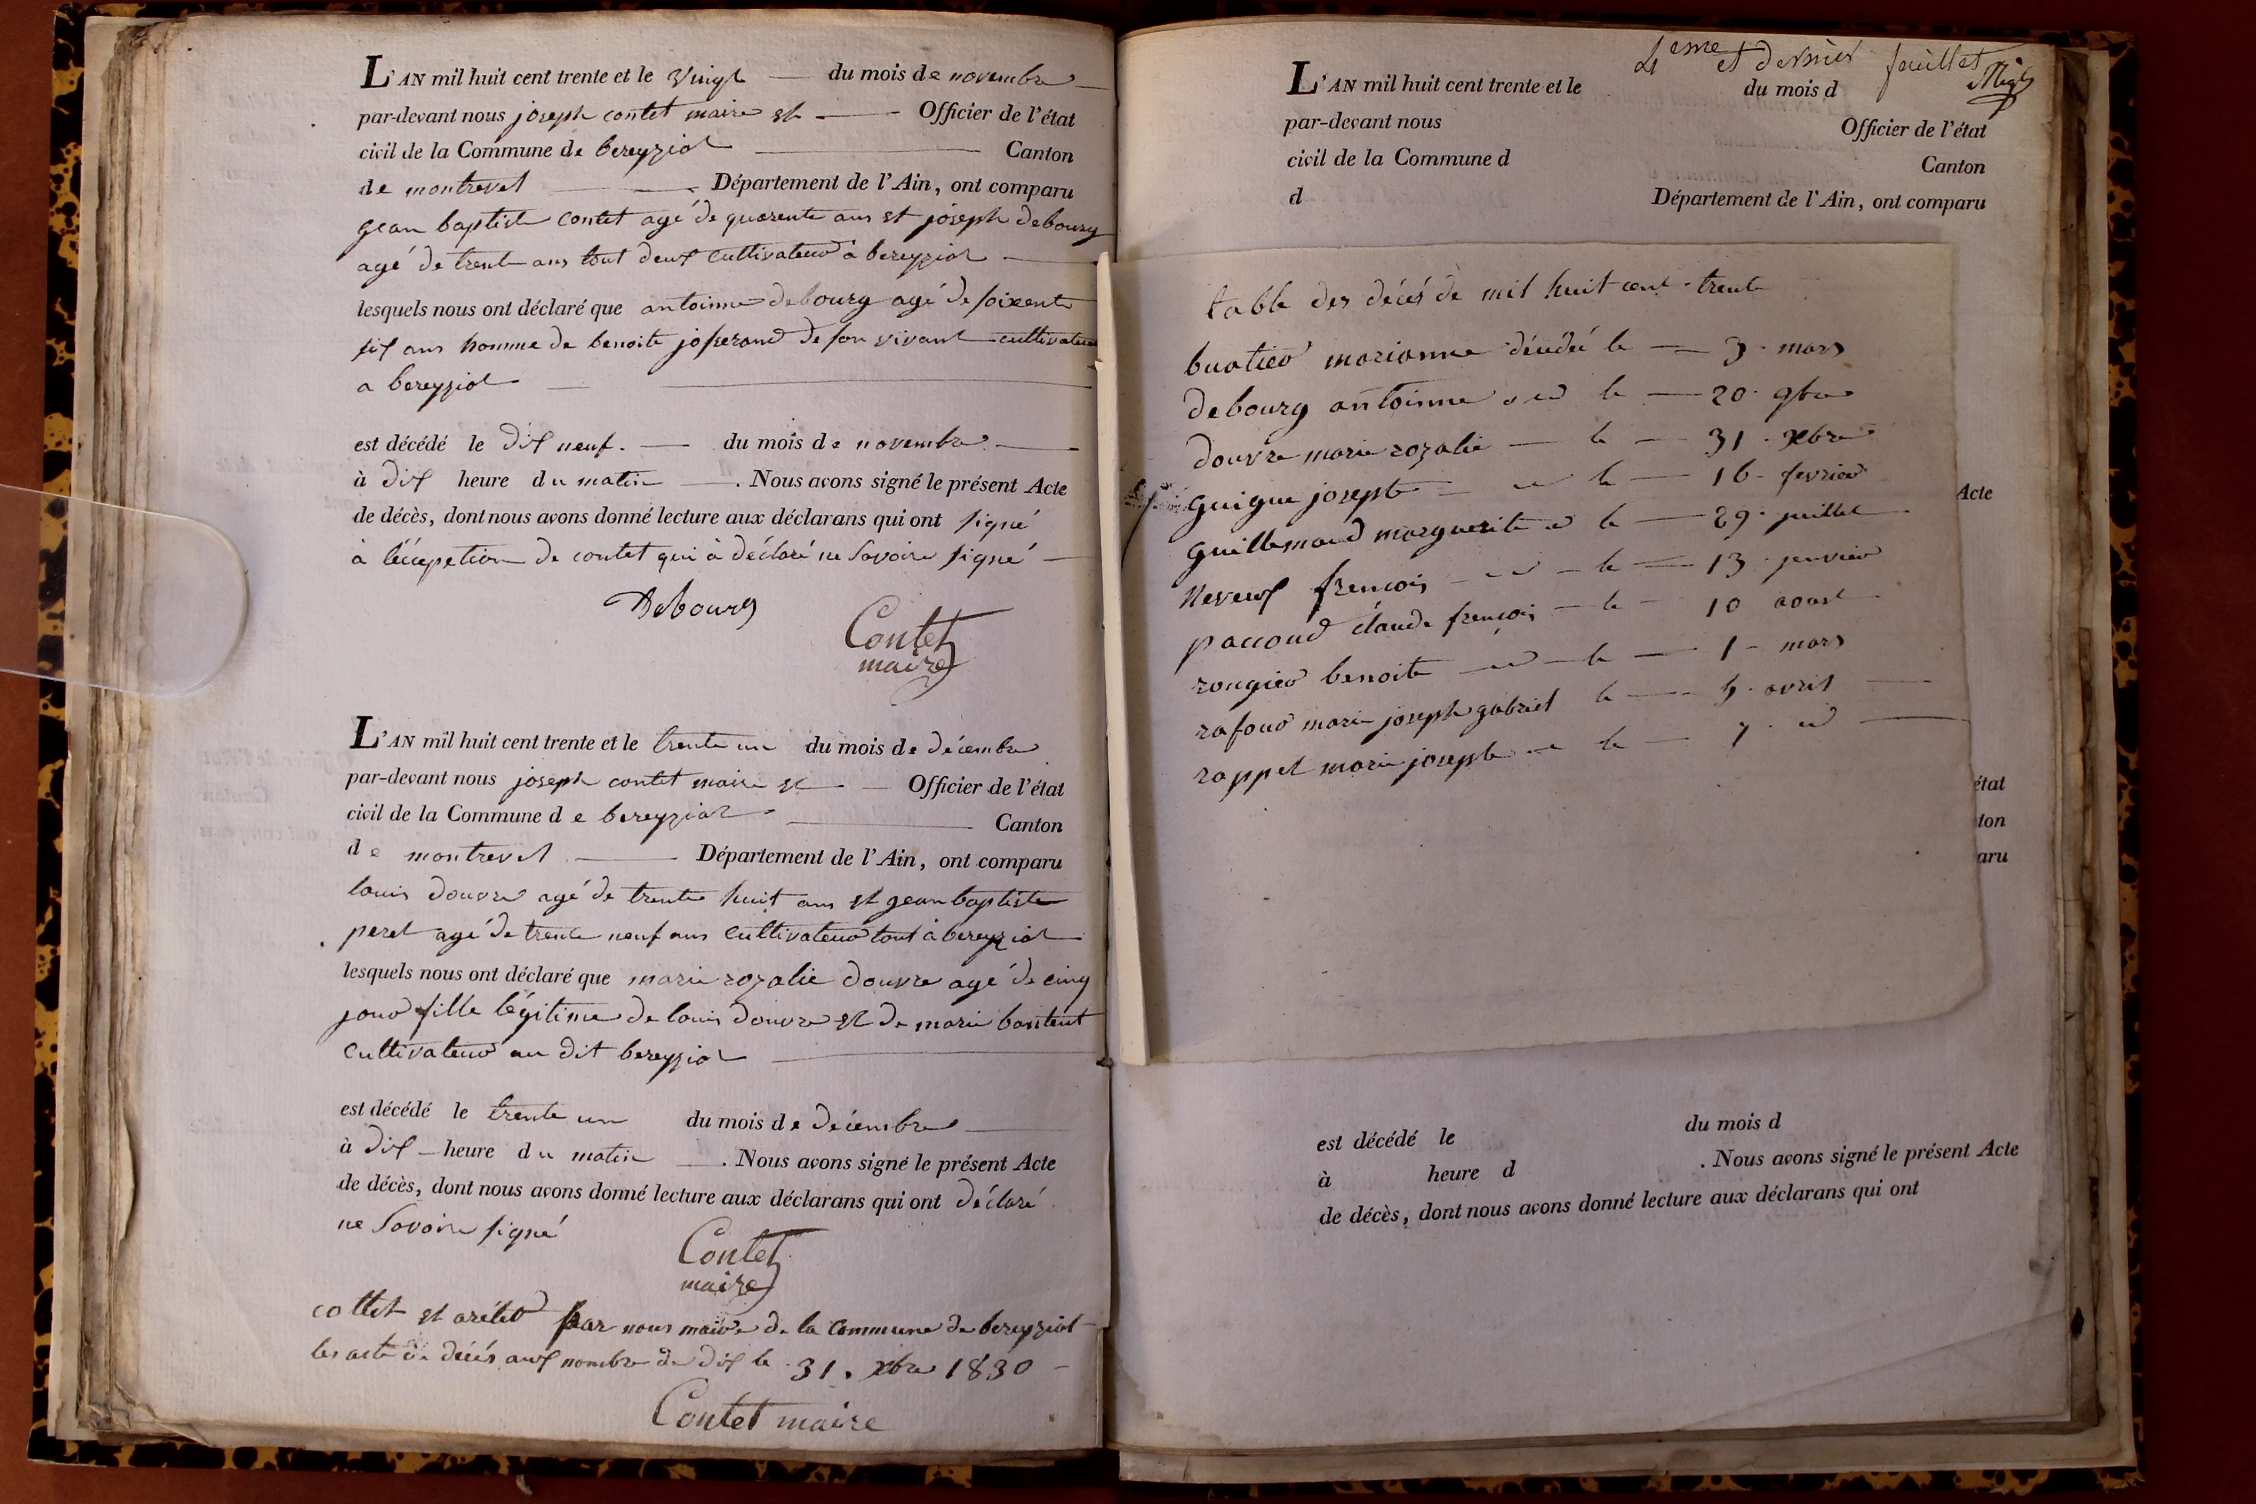 L'AN mil huit cent trente et le vingt du mois de novembre
par-devant nous joseph contet maire et Officier de l'état
civil de la Commune de bereyziat Canton
de montrevel Département de l'Ain, ont comparu
gean baptiste contet agé de quarente ans et joseph debourg
agé de trente ans tout deux cultivateur à bereyziat
lesquels nous ont déclaré que antoinne debourg agé de soixente
six ans homme de benoite josserand de son vivant cultivateur
a bereyziat
est décédé le dix neuf. du mois de novembre
à dix heure du matin . Nous avons signé le présent Acte
de décès, dont nous avons donné lecture aux déclarans qui ont signé
à l'écepetion de contet qui à déclaré ne savoire signé
Debourg
Contet
maire
L'AN mil huit cent trente et le trente un du mois de décembre
par-devant nous joseph contet maire et Officier de l'état
civil de la Commune de bereyziat Canton
de montrevel Département de l'Ain, ont comparu
louis douvre agé de trente huit ans et gean baptiste
peret agé de trente neuf ans cultivateur tout à bereyziat
lesquels nous ont déclaré que marie rozalie douvre agé de cinq
jour fille légitime de louis douvre et de marie
cultivateur au dit bereyziat
est décédé le trente un du mois de décembre
à dix heure du matin . Nous avons signé le présent Acte
de décès, dont nous avons donné lecture aux déclarans qui ont déclaré
ne savoire signé
Contet
maire
collet et arêter par nous maire de la commune de bereyziat
les acte de décés aux nombre de dix le 31. xbre 1830
Contet maire
4eme et dernier feuillet
L'AN mil huit cent trente et le du mois d
par-devant nous Officier de l'état
civil de la Commune d Canton
d Département de l'Ain, ont comparu
table des décés de mil huit cent trente
buatier marianne décédé le 3. mars
debourg antoinne id le 20. 9bre
douvre marie rozalie le 31. xbre
guigue joseph id le 16. fevrier
guillemaud marguerite id le 29. juillet
neveux francois id le 13. janvier
paccoud claude françois le 10 aoust
rougier benoite id le 1 mars
rafour marie joseph gabriel le 4. avril
rappet marie joseph id le 7. id
Acte
état
ton
aru
est décédé le du mois d
à heure d . Nous avons signé le présent Acte
de décès, dont nous avons donné lecture aux déclarans qui ont